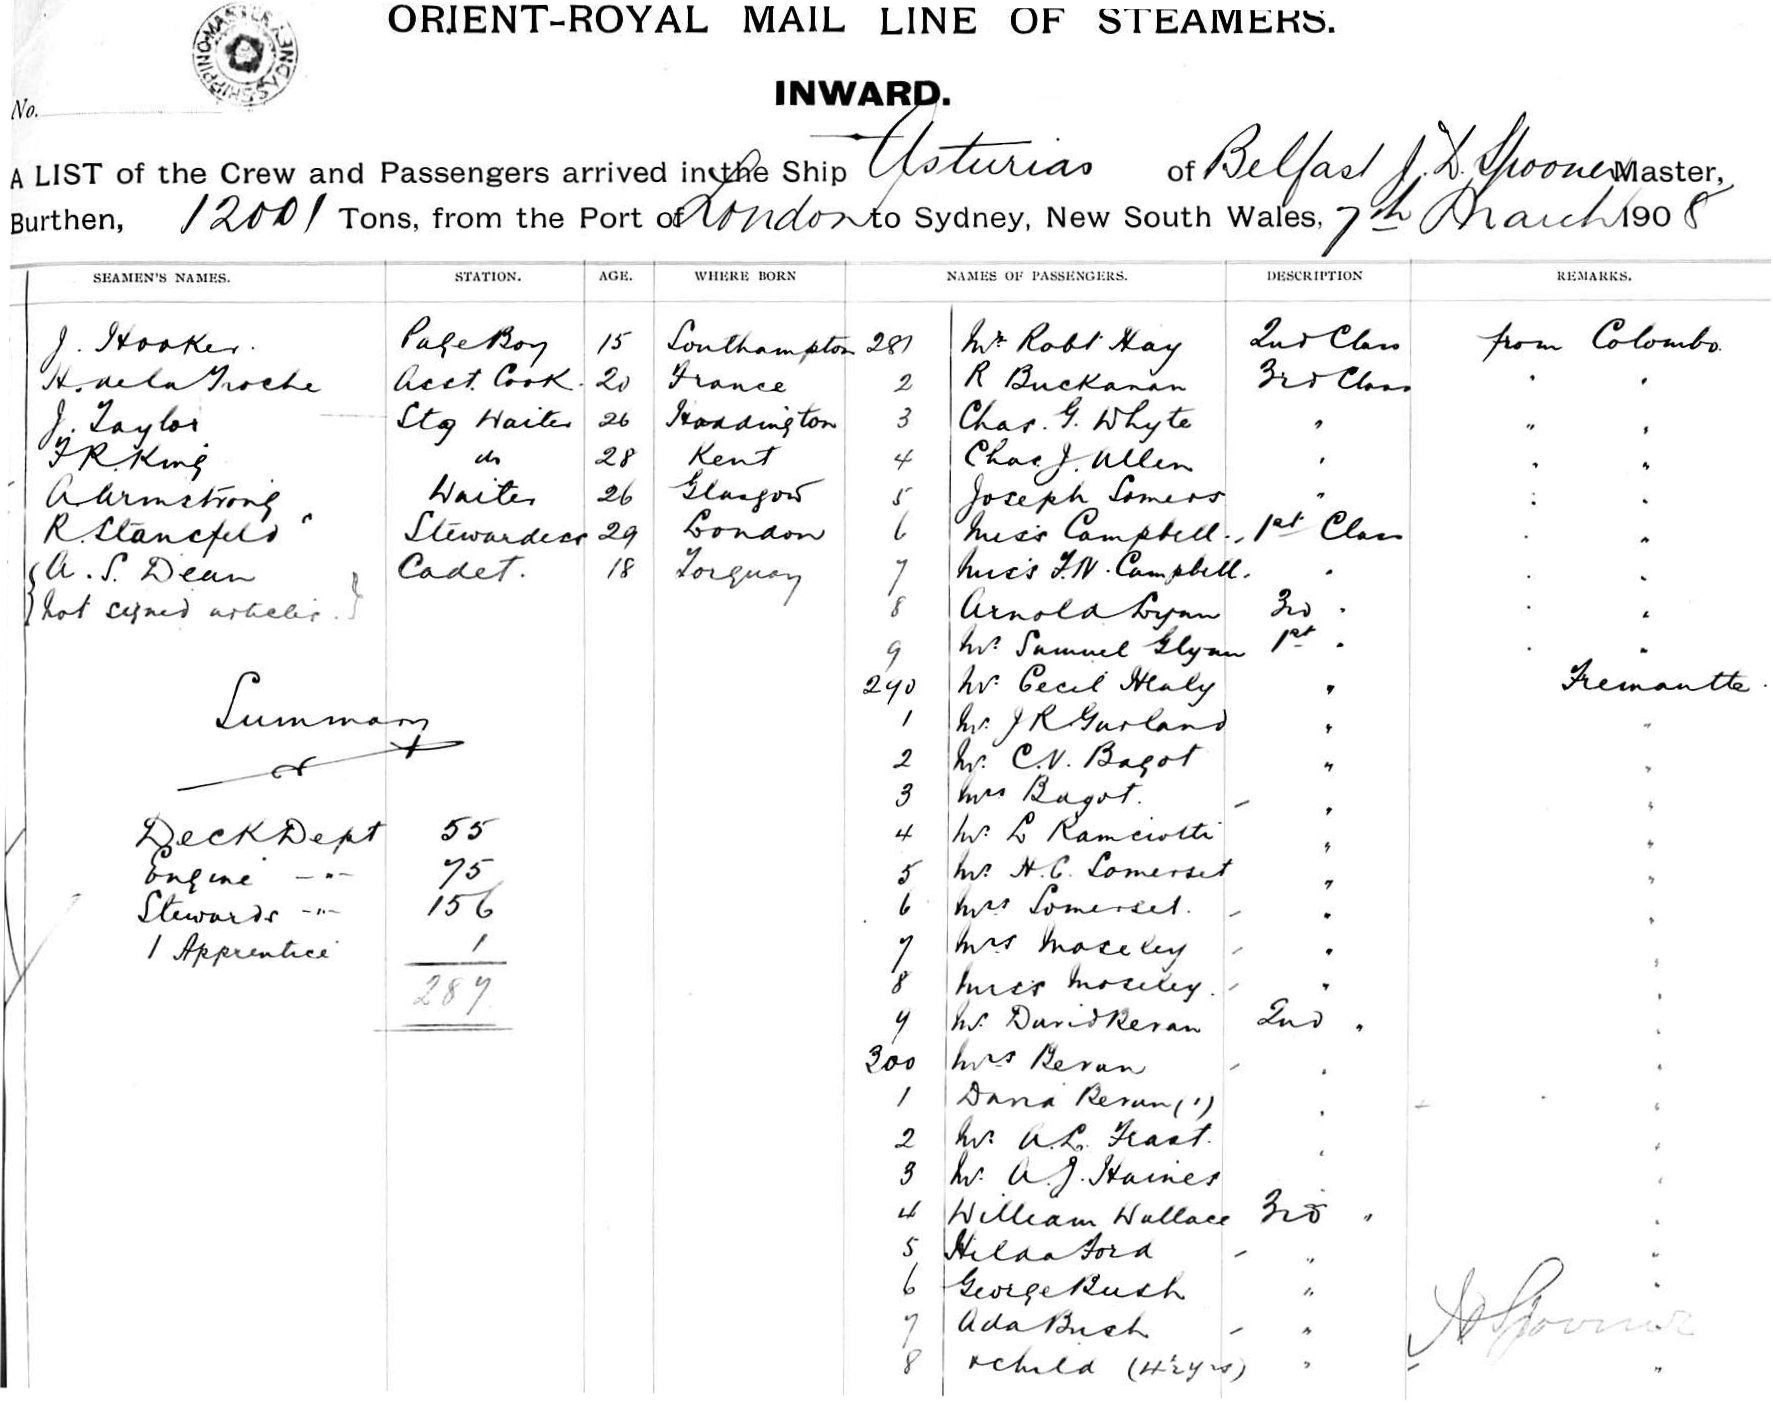 ORIENT-ROYAL MAIL LINE OF STEAMERS.
INWARD.
No.
A LIST of the Crew and Passengers arrived in the Ship Asturias of Belfast J. D. Spooner Master,
Burthen, 12001 Tons, from the Port of London to Sydney, New South Wales, 7th March 1908
SEAMEN'S NAMES. STATION. AGE. WHERE BORN NAMES OF PASSENGERS. DESCRIPTION REMARKS.
J. Hooker. Page Boy 15 Southampton 281 Mr Robt Hay 2nd Class from Colombo.
H. de la Asst. Cook. 20 France 2 R Buckanan 3rd Class " "
J. Taylor Stg Waiter 26 Haddington 3 Chas. G. Whyte " " "
F R. King do 28 Kent 4 Chas. J. Allen " " "
A. Armstrong Waiter 26 Glasgow 5 Joseph Somers " " "
R. Stancfeld Stewardess 29 London 6 Miss Campbell. 1st Class " "
A. S. Dean Cadet. 18 Torquay 7 Miss F. N. Campbell. " " "
not signed articles. 8 Arnold Lynn 3rd " " "
9 Mr. Samuel Glynn 1st " " "
290 Mr. Cecil Healy " Fremantle.
Summary 1 Mr. J R Garland " "
2 Mr. C. N. Bagot " "
3 Mrs Bagot. " "
Deck Dept 55 4 Mr. L Ramciotti " "
Engine -"- 75 5 Mr. H. C. Somerset " "
Stewards -"- 156 6 Mrs Somerset. " "
1 Apprentice 1 7 Mrs Moseley " "
287 8 Miss Moseley. " "
9 Mr. David Bevan 2nd " "
300 Mrs Bevan " "
1 David Bevan (1) " "
2 Mr. A. L. " "
3 Mr. A. J. Haines "
4 William Wallace 3rd " "
5 Hilda Ford " "
6 George Bush " "
7 Ada Bush "
J D Spooner
8 & child (4½ yrs) " "